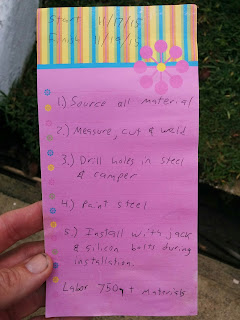 Start 11/17/15
Finish 11/19/15
1.) Source all material
2.) Measure, cut & weld
3.) Drill holes in steel
& camper
4.) Paint steel
5.) Install with jack
& silicon bolts during
installation.
Labor 750 + materials